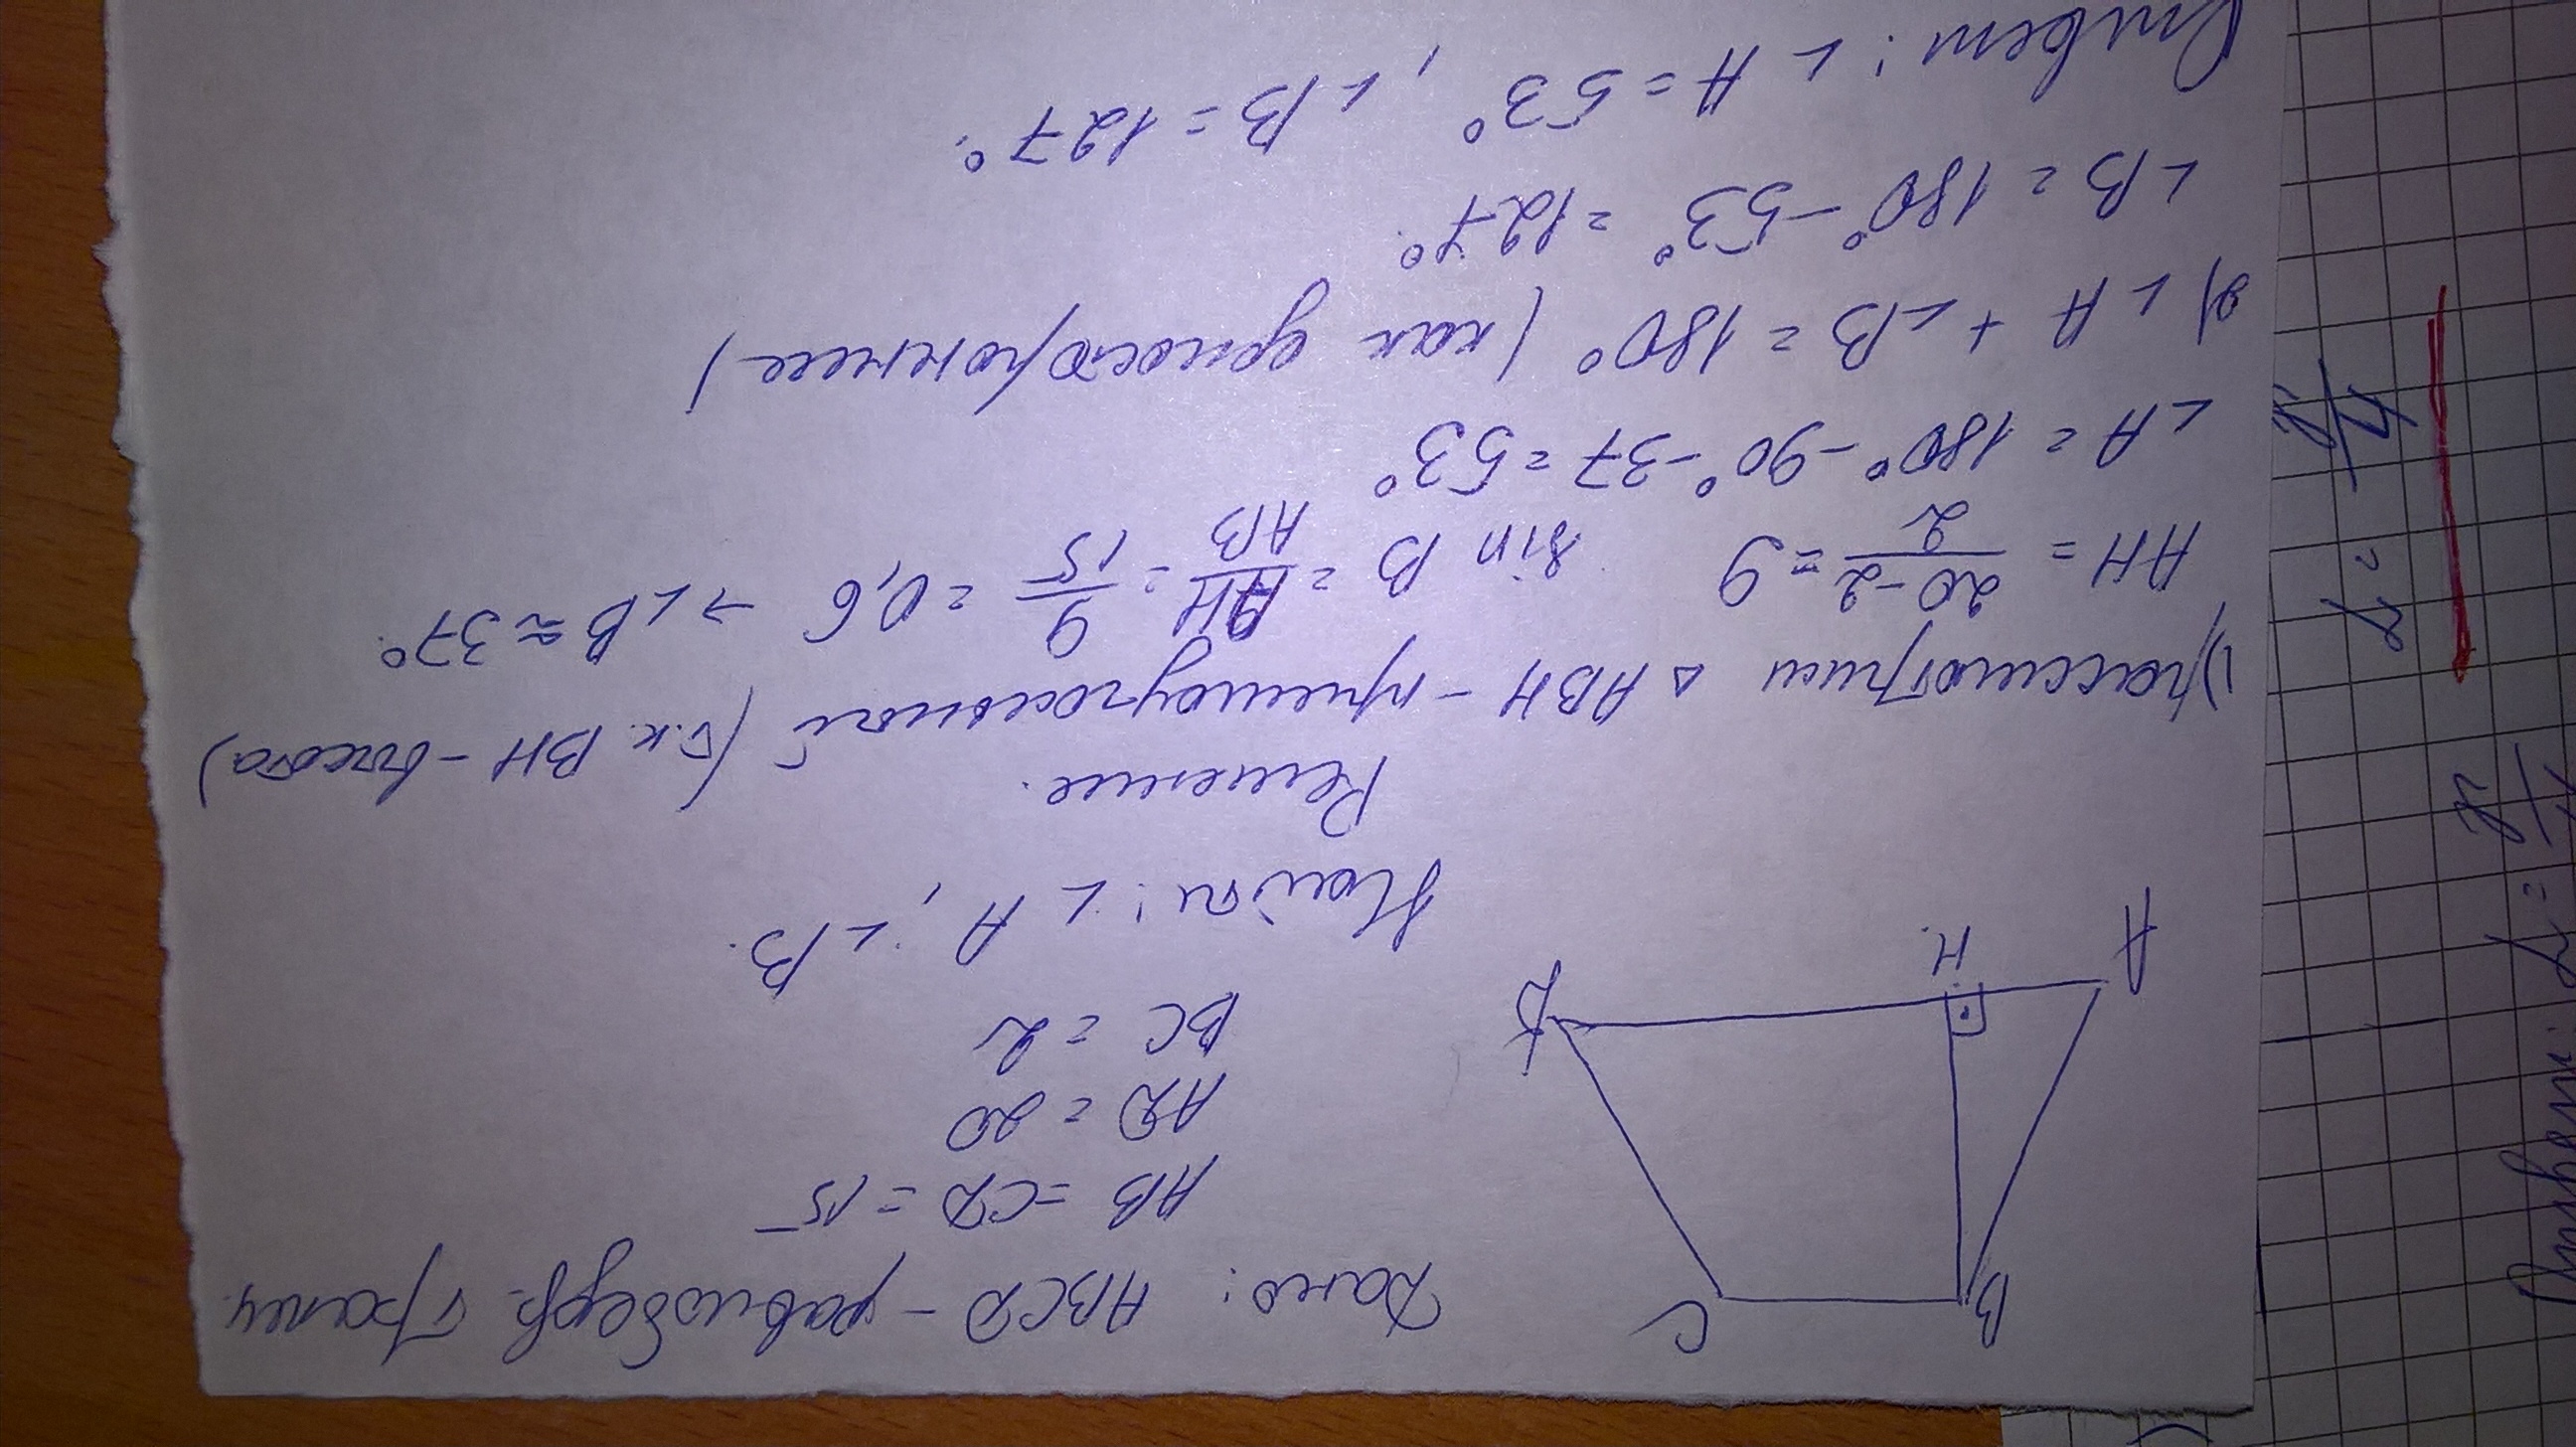 Дано: ABCD - равнобедр. трапец.
AB = CD = 15
AD = 20
BC = 2
Найти: ∠A, ∠B.
B
C
A
H
D
Решение.
1) рассмотрим ▵ ABH - прямоугольный (т.к. BH - высота)
AH = 20-2/2 = 9 sin B = AH/AB = 9/15 = 0,6 → ∠B ≈ 37°.
∠A = 180° - 90° - 37 = 53°
2) ∠A + ∠B = 180° (как односторонние)
∠B = 180° - 53° = 127°.
Ответ: ∠A = 53°, ∠B = 127°.